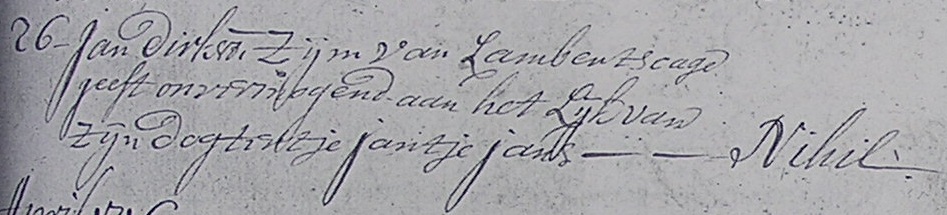 26 - Jan Dirksz. Zijm van Lambertscage
geeft onvermogend aan het Lijk van
zijn dogtertje Jantje Jans — — Nihil.
April 17